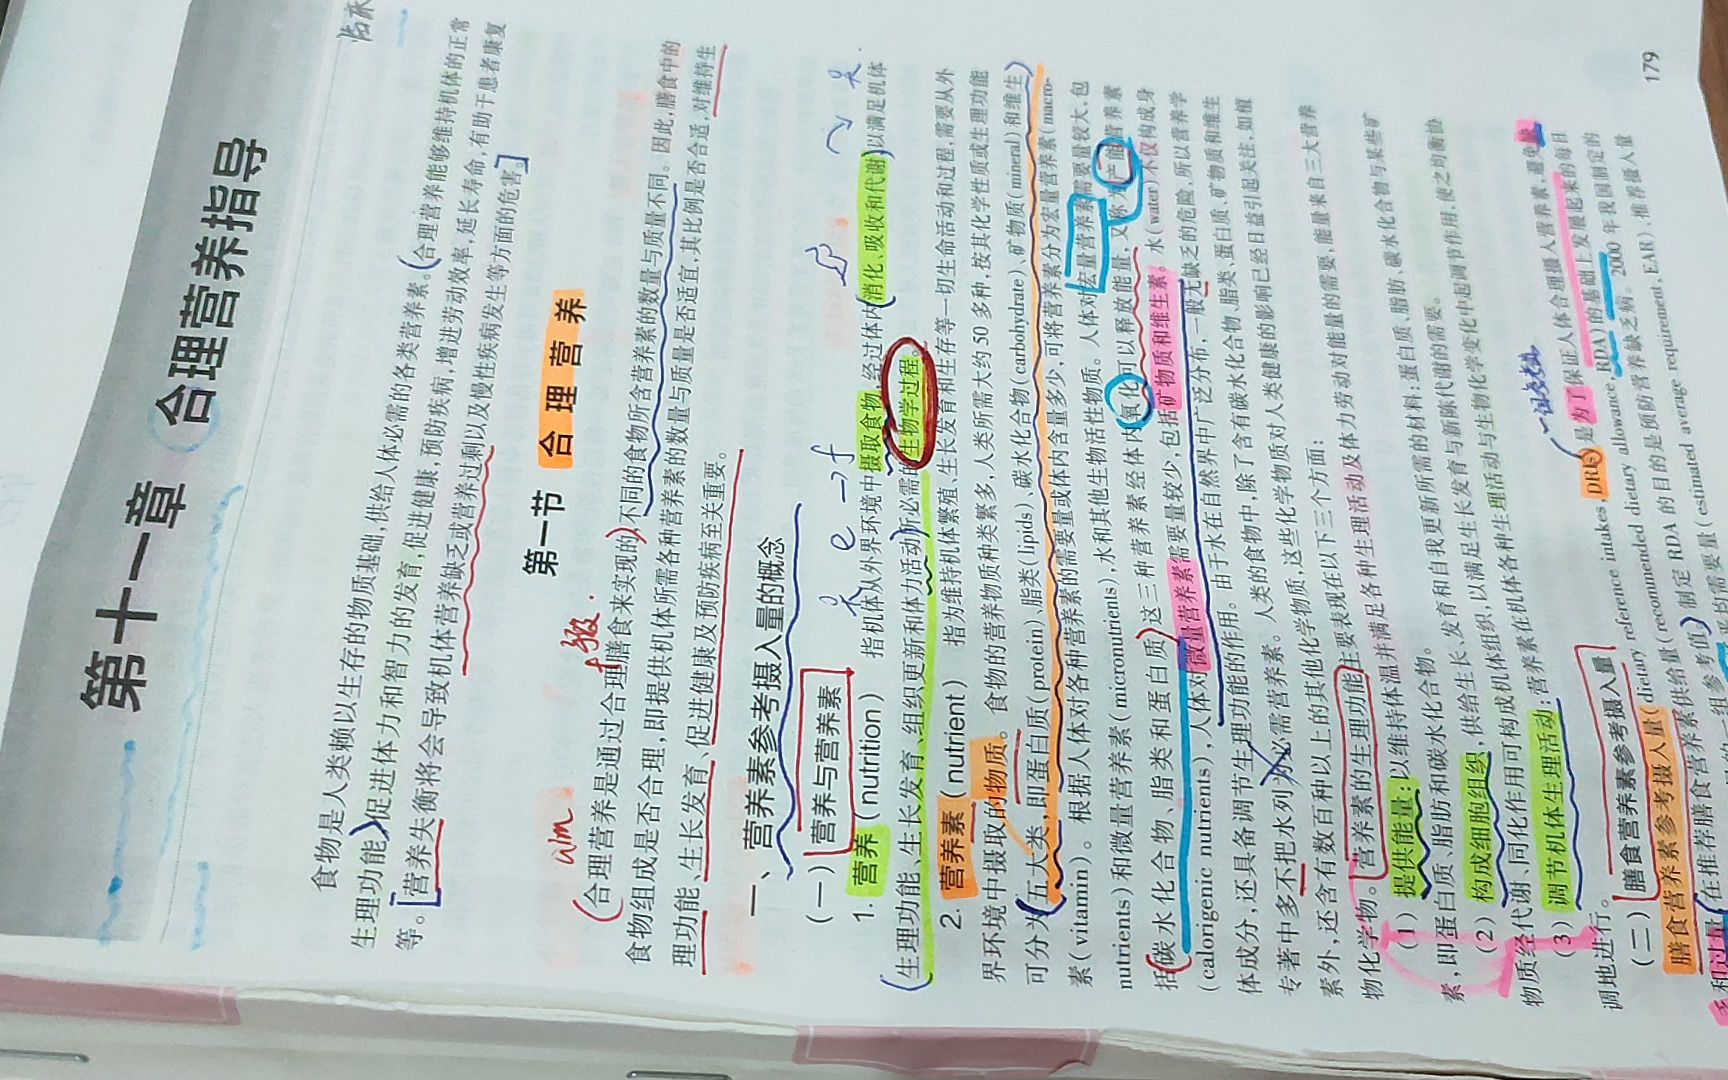 第十一章 合理营养指导
食物是人类赖以生存的物质基础,供给人体必需的各类营养素。合理营养能够维持机体的正常
生理功能,促进体力和智力的发育,促进健康,预防疾病,增进劳动效率,延长寿命,有助于患者康复
等。营养失衡将会导致机体营养缺乏或营养过剩以及慢性疾病发生等方面的危害。
第一节 合理营养
合理营养是通过合理膳食来实现的,不同的食物所含营养素的数量与质量不同。因此,膳食中的
食物组成是否合理,即提供机体所需各种营养素的数量与质量是否适宜,其比例是否合适,对维持生
理功能、生长发育、促进健康及预防疾病至关重要。
一、营养素参考摄入量的概念
(一)营养与营养素
1. 营养(nutrition) 指机体从外界环境中摄取食物,经过体内消化、吸收和代谢,以满足机体
生理功能、生长发育、组织更新和体力活动所必需的生物学过程。
2. 营养素(nutrient) 指为维持机体繁殖、生长发育和生存等一切生命活动和过程,需要从外
界环境中摄取的物质。食物的营养物质种类繁多,人类所需大约 50 多种,按其化学性质或生理功能
可分为五大类,即蛋白质(protein)、脂类(lipids)、碳水化合物(carbohydrate)、矿物质(mineral)和维生
素(vitamin)。根据人体对各种营养素的需要量或体内含量多少,可将营养素分为宏量营养素(macro-
nutrients)和微量营养素(micronutrients),水和其他生物活性物质。人体对宏量营养素需要量较大,包
括碳水化合物、脂类和蛋白质,这三种营养素经体内氧化可以释放能量,又称产能营养素
(calorigenic nutrients),人体对微量营养素需要量较少,包括矿物质和维生素。水(water)不仅构成身
体成分,还具备调节生理功能的作用。由于水在自然界中广泛分布,一般无缺乏的危险,所以营养学
专著中多不把水列为必需营养素。人类的食物中,除了含有碳水化合物、脂类、蛋白质、矿物质和维生
素外,还含有数百种以上的其他化学物质,这些化学物质对人类健康的影响已经日益引起关注,如植
物化学物。营养素的生理功能主要表现在以下三个方面:
(1) 提供能量:以维持体温并满足各种生理活动及体力劳动对能量的需要,能量来自三大营养
素,即蛋白质、脂肪和碳水化合物。
(2) 构成细胞组织,供给生长、发育和自我更新所需的材料:蛋白质、脂肪、碳水化合物与某些矿
物质经代谢、同化作用可构成机体组织,以满足生长发育与新陈代谢的需要。
(3) 调节机体生理活动:营养素在机体各种生理活动与生物化学变化中起调节作用,使之均衡协
调地进行。
(二)膳食营养素参考摄入量
膳食营养素参考摄入量(dietary reference intakes, DRIs)是为了保证人体合理摄入营养素,避免缺
和过量,在推荐膳食营养素供给量(recommended dietary allowance, RDA)的基础上发展起来的每日
参考值。制定 RDA 的目的是预防营养缺乏病。2000 年我国制定的
(estimated average requirement, EAR)、推荐摄入量
179